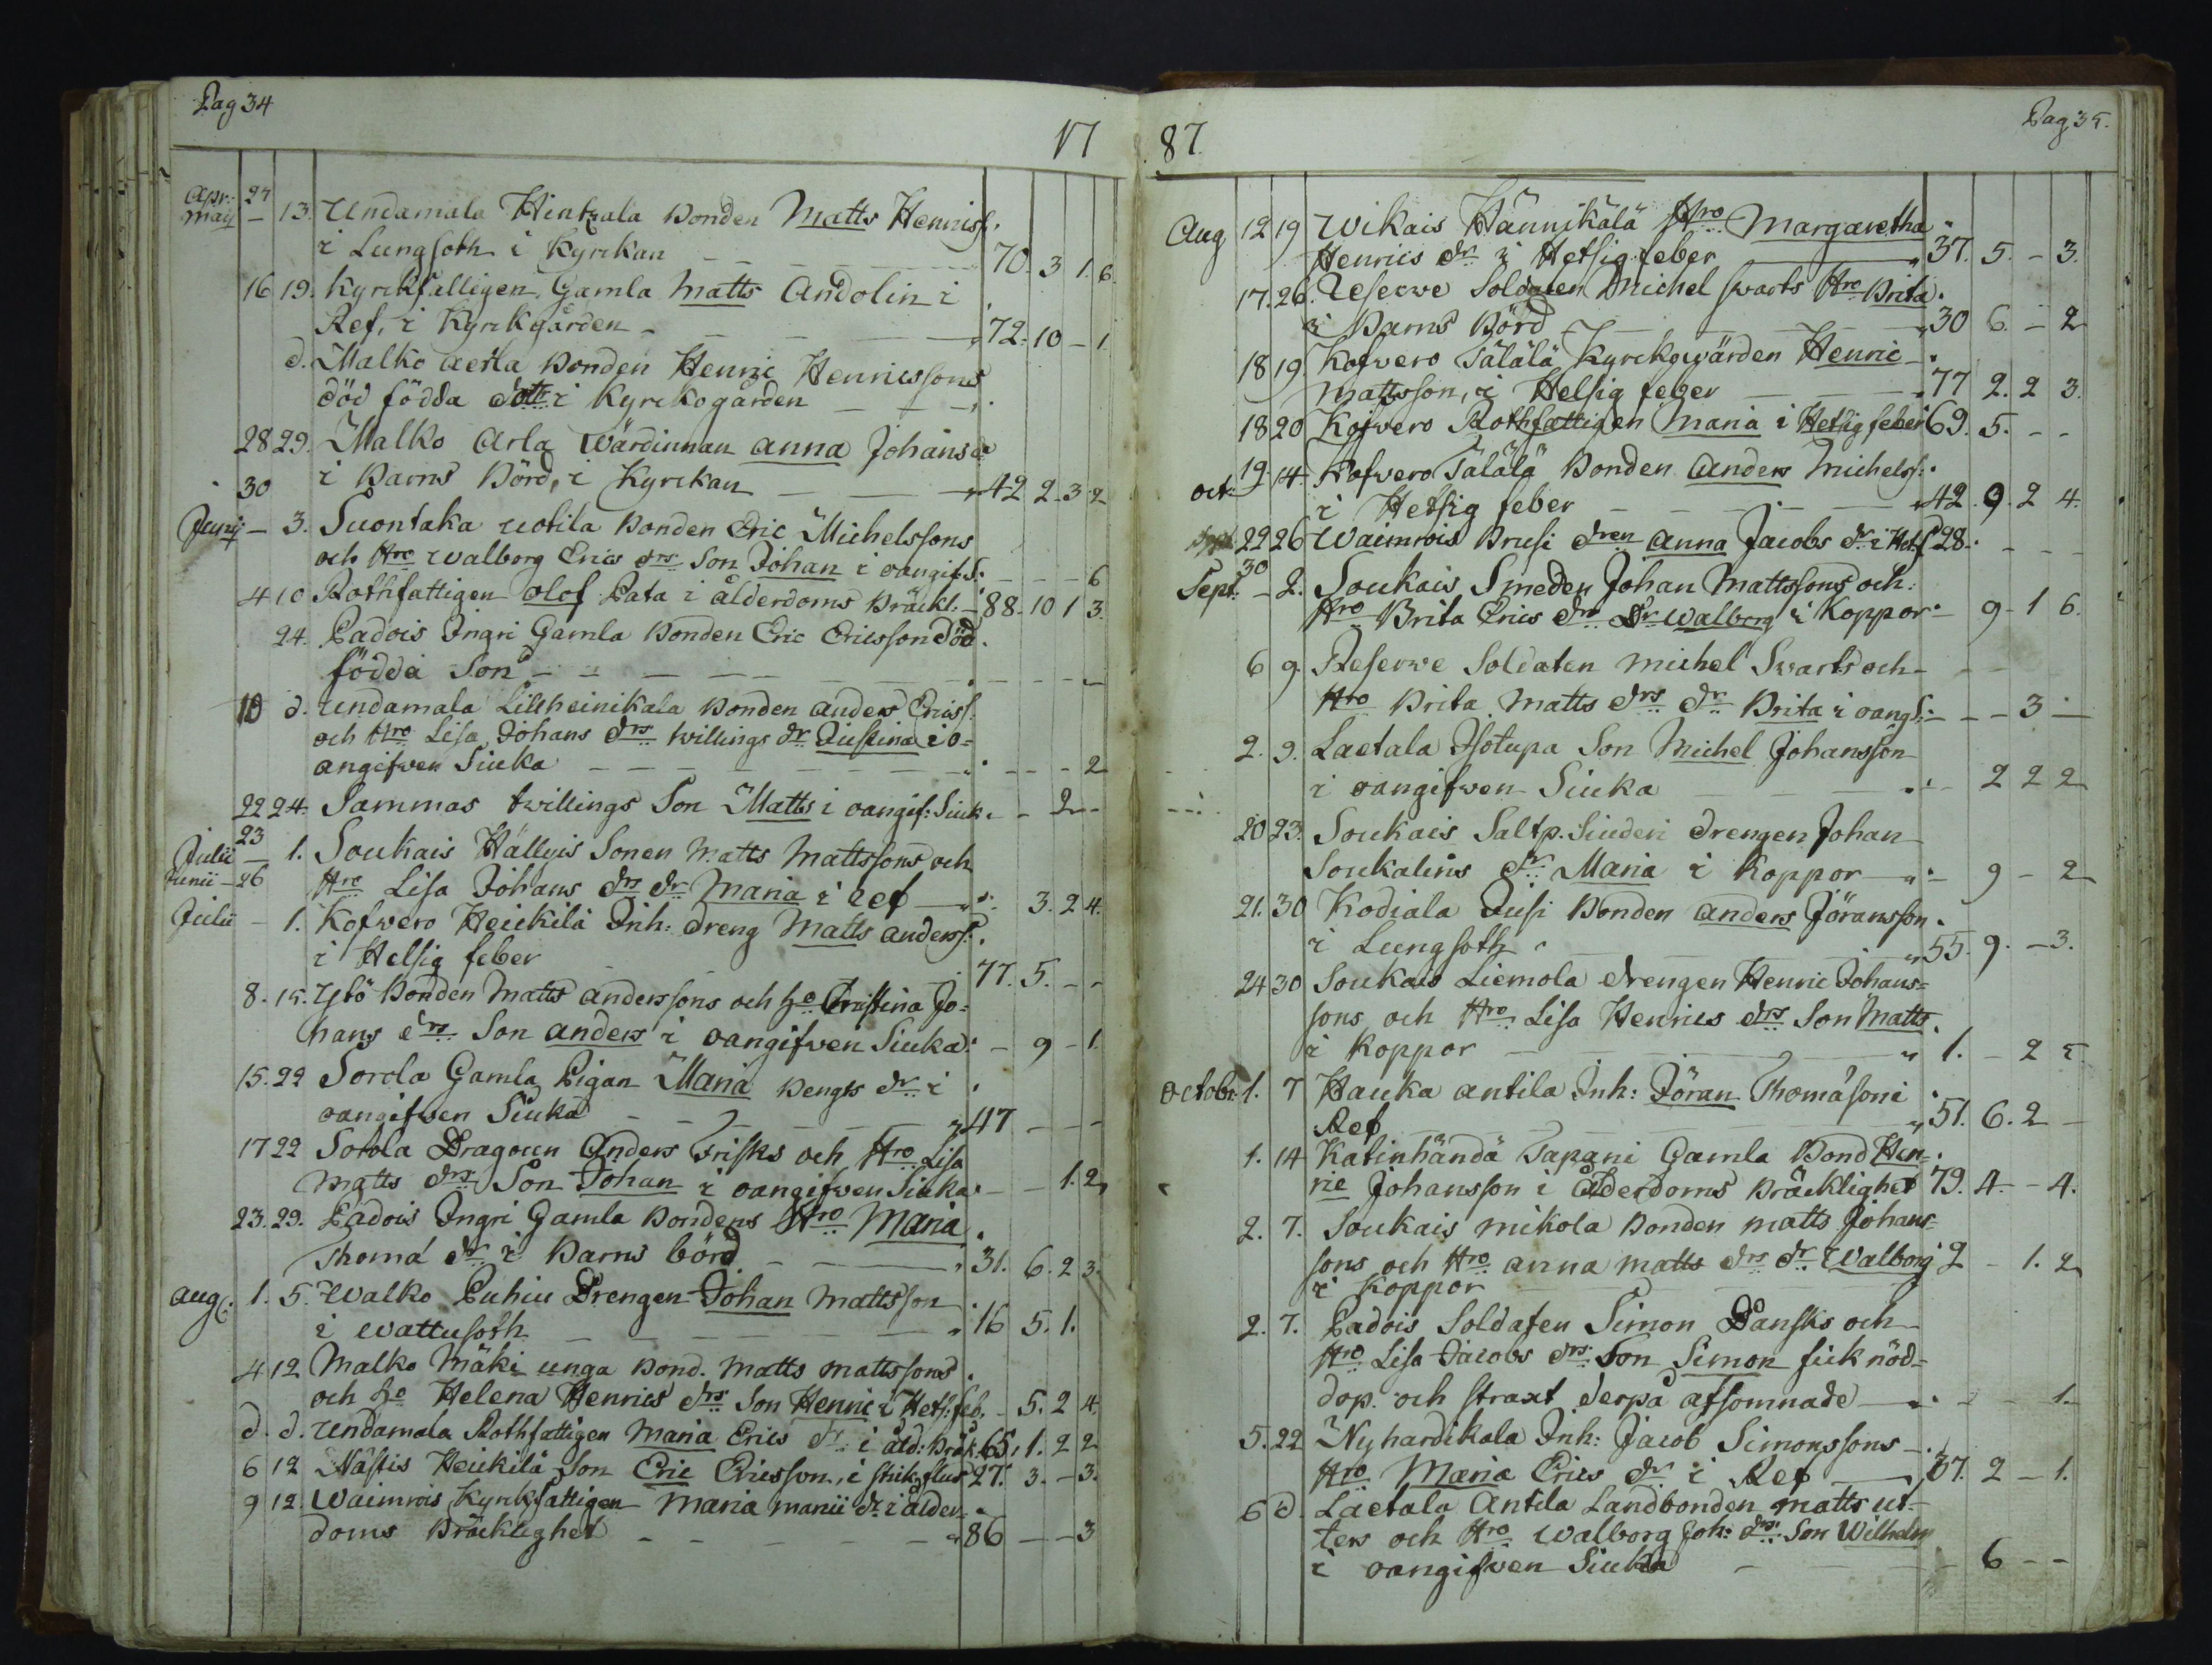 Pag 34
17
Apr: 27
May – 13. Undamala Hintzala Bonden Matts Henriss.
i Lungsoth i Kyrckan – – – 70. 3 1. 6
16 19. Kyrckfattigen Gamla Matts Andolin i
Ref, i Kyrckgården – – – 72. 10 – 1
d. Malko Aerla Bonden Henric Henricssons
död födda dott: i Kyrckogården – – –
28 29. Malko Arla Wärdinnan Anna Johans dr
30 i Barns Börd, i Kyrckan – – 42 2 – 3 2
Junij – 3. Suontaka Uotila Bonden Eric Michelssons
och Hro Walborg Erics drs Son Johan i oangif. S. – – – 6
4 10 Rothfattigen Olof Pata i ålderdoms Bräckl: – 88 – 10 1 3.
24. Padois Ingri Gamla Bonden Eric Ericsson Död
födda Son – – – –
10 d. Undamala Lillheinikala Bonden Anders Ericss.
och Hro Lisa Johans drs twillings dr Justina i o=
angifven Siuka – – – – 2
22 24. Sammas twillings Son Matts i oangif: Siuk. – 2 –
23
Julii – 1. Soukais Hällyis Sonen Matts Mattssons och
Junii – 26 Hro Lisa Johans drs dr Maria i ref – 3. 2 4.
Julii – 1. Kofvero Heickilä Inh: dreng Matts anderss.
i Hetsig feber 77. 5. – –
8. 15. Ylö Bonden Matts anderssons och ho Christina Jo=
hans drs Son anders i oangifven Siuka. – 9 – 1.
15. 22 Sorola Gamla Pigan Maria Bengts dr i
oangifven Siuka – – 47 – – –
17 22 Sorola Dragoun Anders Frisks och Hro Lisa
Matts drs Son Johan i oangifven Siuka. – – 1. 2
23. 29. Padois Ingri Gamla Bondens Hro Maria
Thoma dr i Barns börd – – 31. 6. 2 3.
Aug: 1. 5. Walko Puhiu Drengen Johan Mattsson
i Wattusoth – – – 16 5. 1.
4 12 Malko Mäki unga Bond. Matts Mattssons
och ho Helena Henrics drs Son Henric i Hets: feb. – 5. 2 4.
d. d. Undamala Rothfattigen Maria Erics dr i åld: Bräk. 65, 1. 2 2
6 12 Nästis Heickilä Son Eric Ericsson, i stickflus 27. 3. – 3.
9 12. Waimrois Kyrckfattigen Maria Marii dr i ålder=
doms Bräcklighet – – – – 86 – – 3
87.
Pag 35.
Aug 12 19 Wikais Hännikälä Hro Margaretha
Henrics dr i Hetsig feber – 37. 5. – 3.
17. 26. Reserwe Soldaten Michel Swarts Hro Brita
i Barns Börd – – – 30 6. – 2
18 19. Kofvero Tälälä Kyrckowärden Henric
Mattsson, i Hetsig feber – – 77 2. 2 3.
18 20 Kofvero Rothfattigen Maria i Hetsig feber 69. 5. – –
oct: 19 14. Kofvero Tälälä Bonden Anders Michelss:
i Hetsig feber – – – 42. 9. 2 4.
22 26 Waimrois Brusi dren Anna Jacobs dr i Hets 28. – – –
30
Sept: – 2. Soukais Smeden Johan Mattssons och
Hro Brita Erics drs Dr Walborg i Koppor – 9 – 1 6.
6 9. Reserwe Soldaten Michel Swarts och
Hro Brita Matts drs dr Brita i oang S: – – 3 –
2. 9. Laetala Isotupa Son Michel Johansson
i oangifven Siuka – – – 2 2 2
20 23. Soukais Saltp. Siuderi drengen Johan
Soukalins dr Maria i Koppor – 9 – 2
21. 30 Kodiala Jusi Bonden Anders Jöransson
i Lungsoth – – – 55. 9. – 3.
24 30 Soukais Liemola drengen Henric Johans=
sons och Hro Lisa Henrics drs Son Matts
i Koppor – – – 1. – 2 5.
Octobr: 1. 7 Hauka Antila Inh: Jöran Thomäson i
Ref – – – 51. 6. 2 –
1. 14 Katinhändä Tapani Gamla Bond Hen=
ric Johansson i ålderdoms Bräcklighet 79. 4. – 4.
2. 7. Soukais Mikola Bonden Matts Johans=
sons och Hro Anna Matts drs dr Walborg 2 – 1. 2
i Koppor
2. 7. Padois Soldaten Simon Dansks och
Hro Lisa Jacobs drs Son Simon fick nöd=
dop. och straxt derpå afsomnade – – – 1.
5. 22 Nyhardikala Inh: Jacob Simonssons
Hro Maria Erics dr i Ref – 37. 2 – 1.
6 d. Laetala Antila Landbonden Matts ut=
ters och Hro Walborg Joh: drs: Son Wilhelm
i oangifven Siuka – – 6 – –